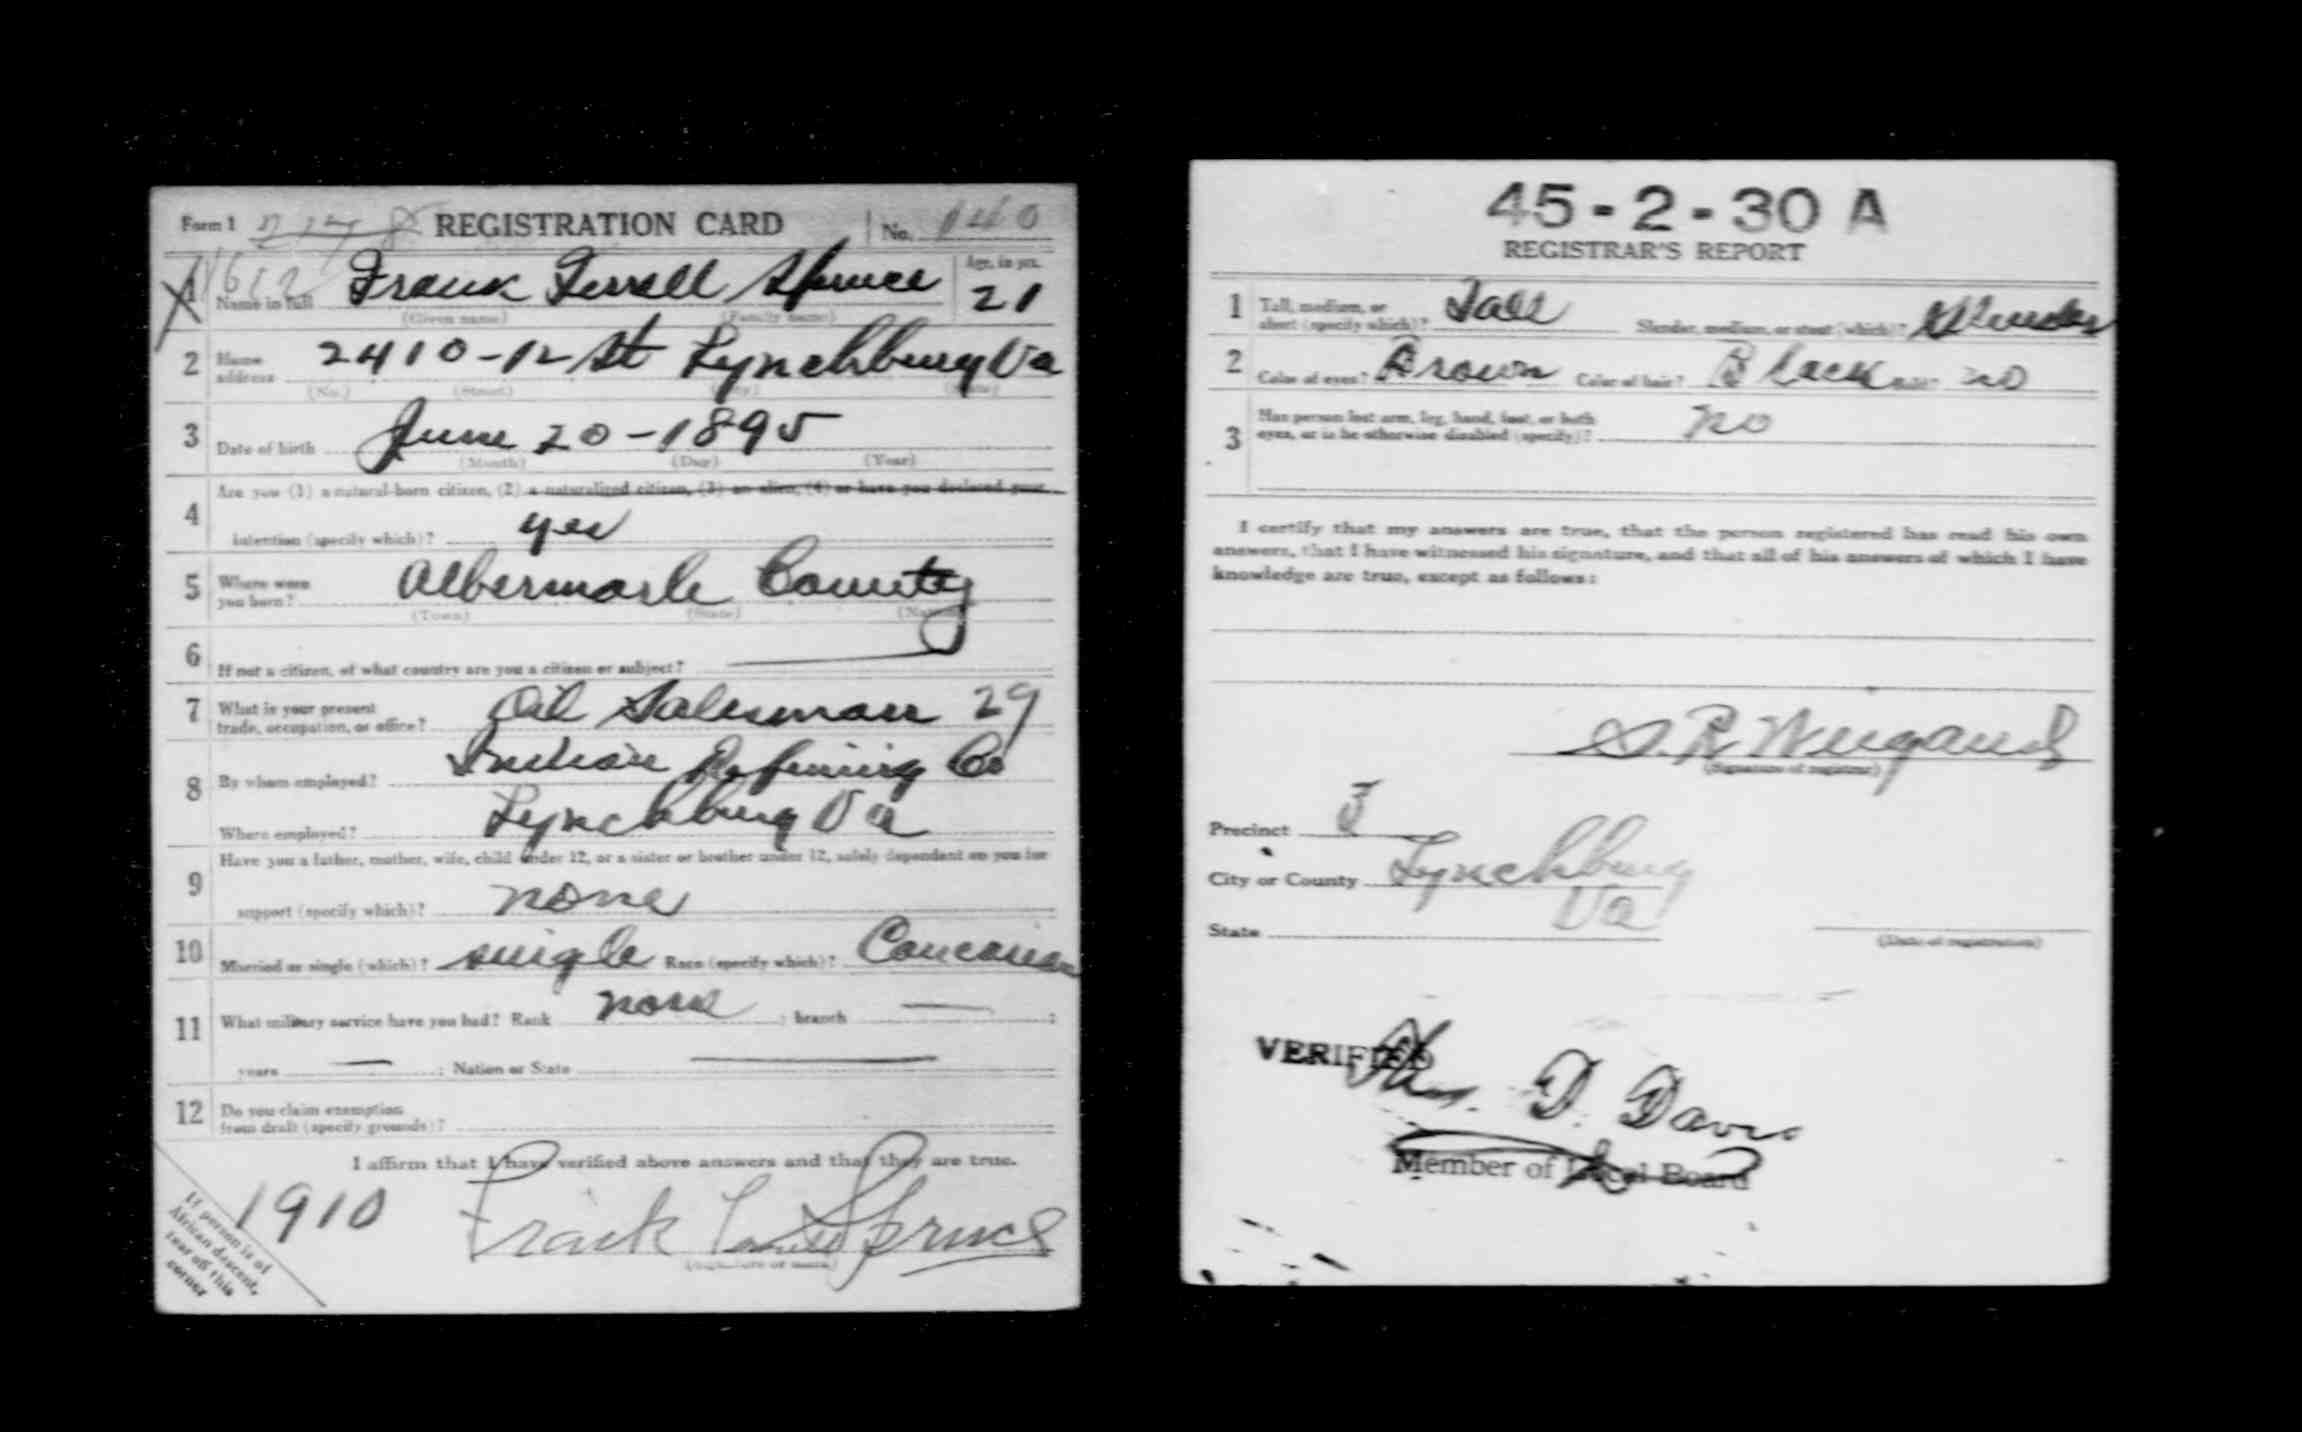 Form 1 REGISTRATION CARD No. 140
1 Name in full Frank Terrell Spruce Age, in yrs. 21
(Given name) (Family name)
2 Home address 2410-12 St Lynchburg Va
(No.) (Street) (City) (State)
3 Date of birth June 20-1895
(Month) (Day) (Year)
4 Are you (1) a natural-born citizen, (2) a naturalized citizen, (3) an alien, (4) or have you declared your
intention (specify which)? yes
5 Where were you born? Albermarle County
(Town) (State) (Nation)
6 If not a citizen, of what country are you a citizen or subject?
7 What is your present trade, occupation, or office? Oil Salesman 29
8 By whom employed? Indian Refining Co
Where employed? Lynchburg Va
9 Have you a father, mother, wife, child under 12, or a sister or brother under 12, solely dependent on you for
support (specify which)? none
10 Married or single (which)? single Race (specify which)? Caucasian
11 What military service have you had? Rank none ; branch ;
years ; Nation or State
12 Do you claim exemption from draft (specify grounds)?
I affirm that I have verified above answers and that they are true.
1910 Frank Terrell Spruce
(Signature or mark)
If person is of
African descent,
tear off this
corner
45-2-30 A
REGISTRAR'S REPORT
1 Tall, medium, or short (specify which)? Tall Slender, medium, or stout (which)? Slender
2 Color of eyes? Brown Color of hair? Black no
3 Has person lost arm, leg, hand, foot, or both
eyes, or is he otherwise disabled (specify)? no
I certify that my answers are true, that the person registered has read his own
answers, that I have witnessed his signature, and that all of his answers of which I have
knowledge are true, except as follows:
(Signature of registrar)
Precinct 3
City or County Lynchburg
State Va
(Date of registration)
VERIFIED
D. Davis
Member of Local Board